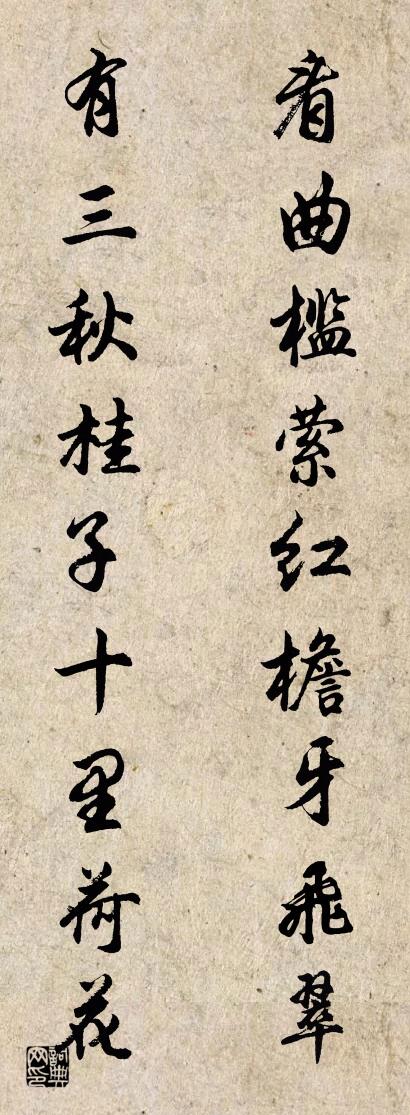 看曲槛萦红檐牙飞翠
有三秋桂子十里荷花
词典网印